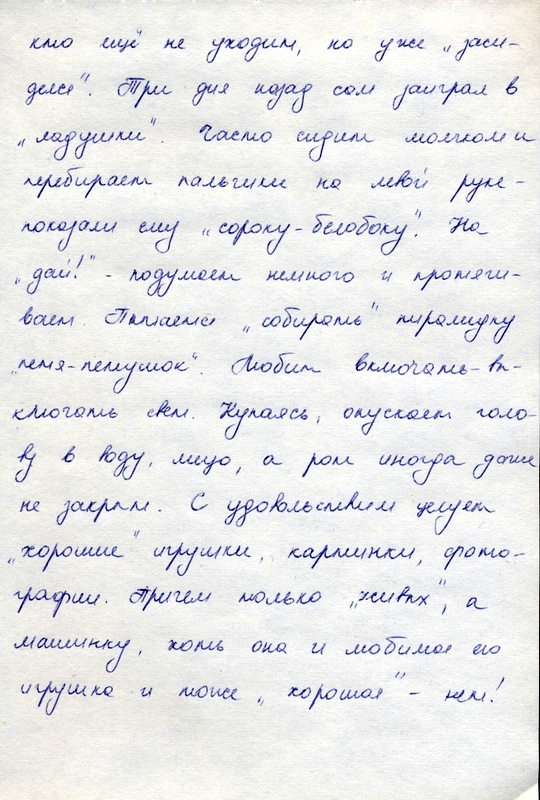 кто ещё не уходит, но уже „заси-
делся“. Три дня назад сам заиграл в
„ладушки“. Часто сидит молчком и
перебирает пальчики на левой руке -
показали ему „сороку-белобоку“. На
„дай!“ - подумает немного и протяги-
вает. Пытается „собирать“ пирамидку
„петя-петушок“. Любит включать-вы-
ключать свет. Купаясь, опускает голо-
ву в воду, лицо, а рот иногда даже
не закрыт. С удовольствием целует
„хорошие“ игрушки, картинки, фото-
графии. Причём только „живых“, а
машинку, хоть она и любимая его
игрушка и тоже „хорошая“ - нет!